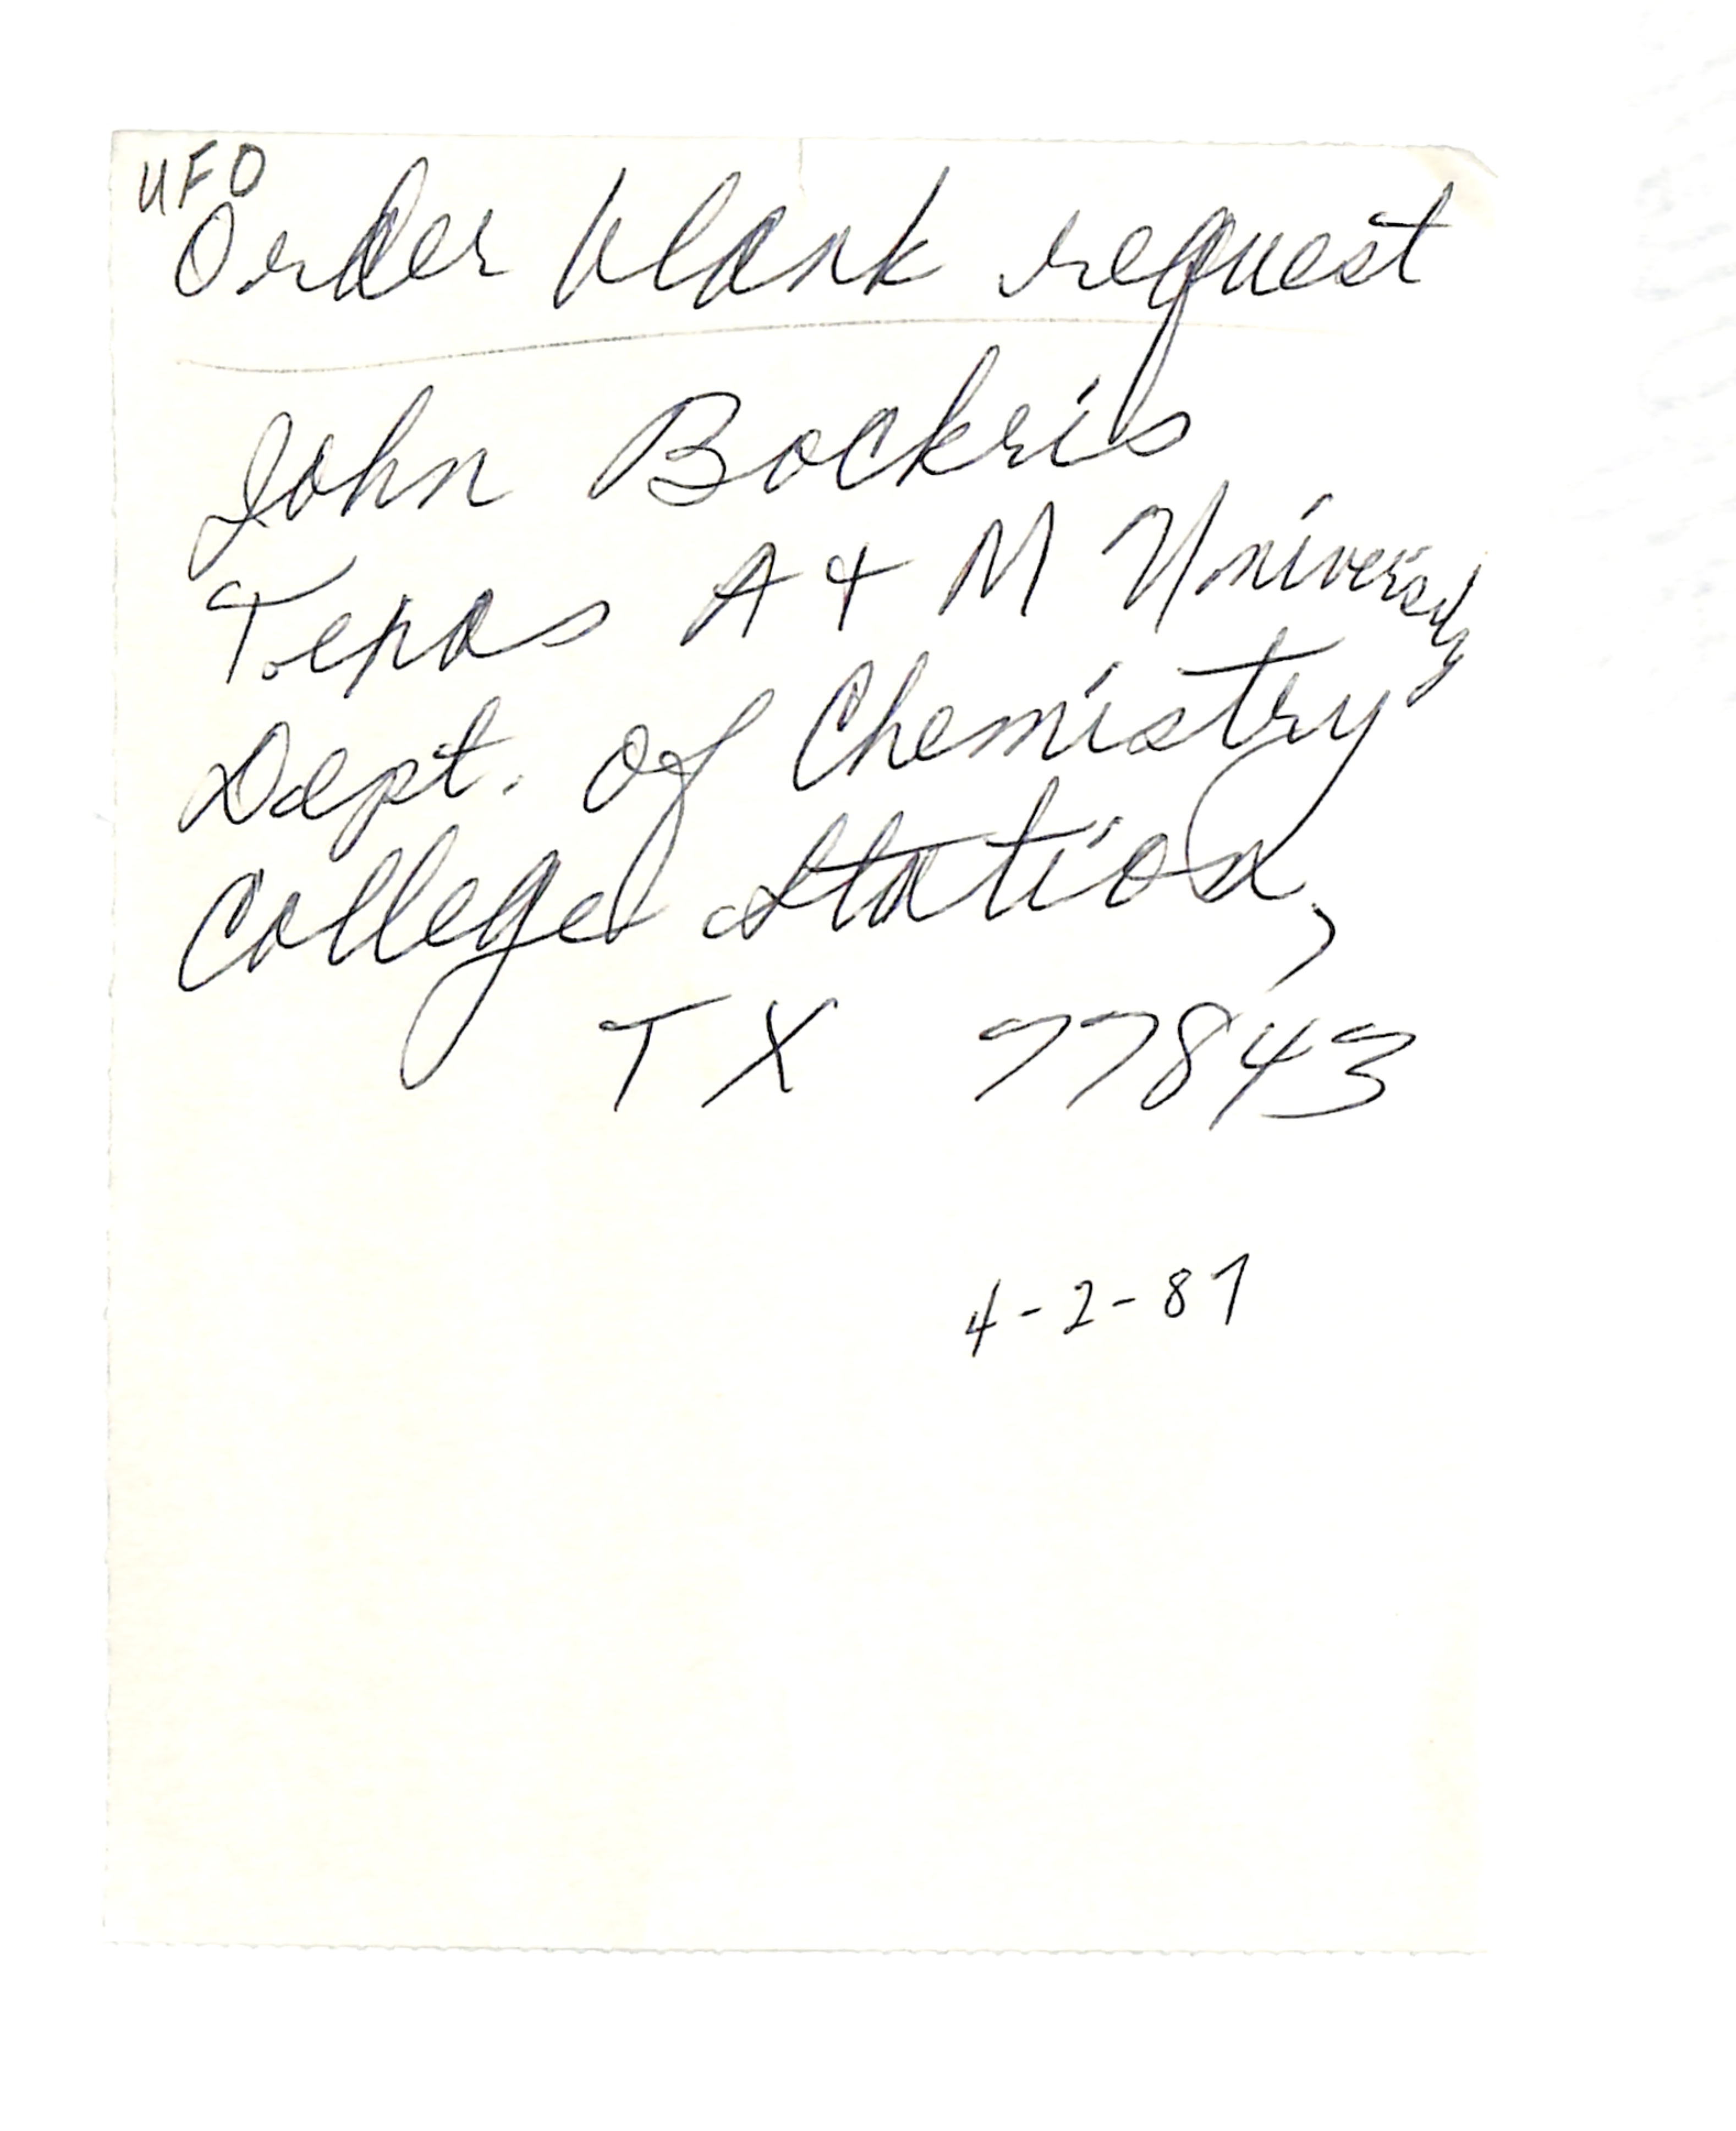 UFO
Order blank request
John Bockris
Texas A & M University
Dept. of Chemistry
College Station,
TX 77843
4-2-87